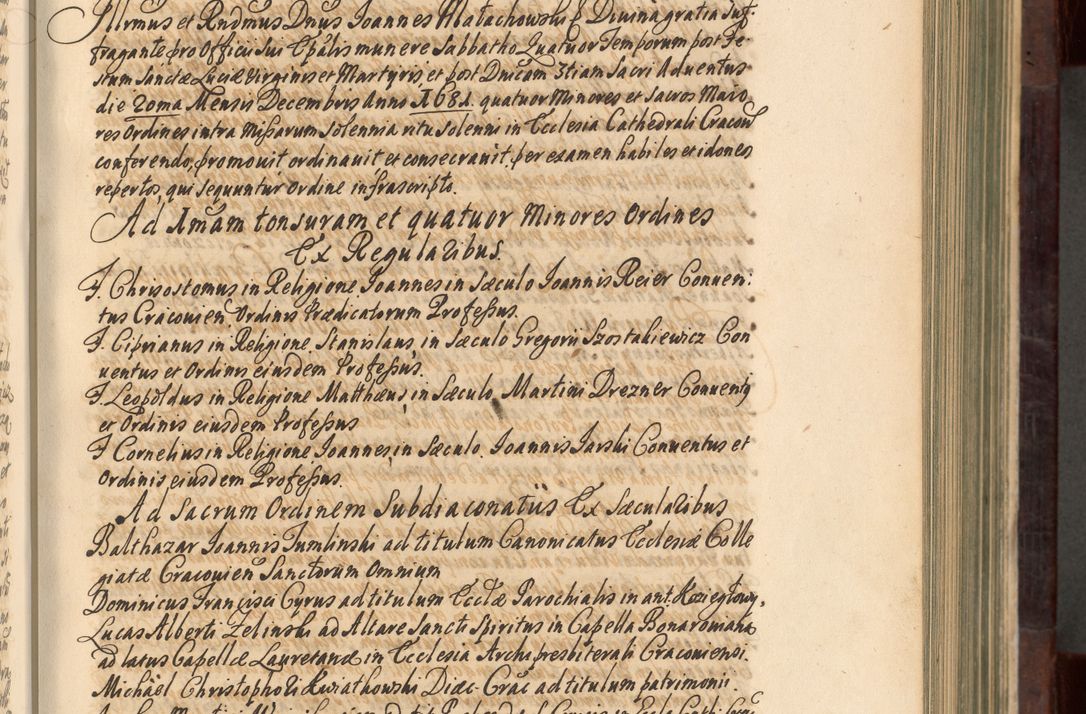 Illrmus et Rndmus Dnus Ioannes Małachowski Divina gratia Suf-
fragante pro Officii Sui Epalis munere Sabbatho Quatuor Temporum post Fe-
stum Sanctæ Luciæ Virginis et Martyris, et post Dnicam 3tiam Sacri Adventus
die 20ma Mensis Decembris Anno 1681. quatuor Minores et Sacros Maio
res Ordines intra Missarum Solennia ritu solenni in Ecclesia Cathedrali Cracou
conferendo, promouit ordinauit et consecrauit, per examen habiles et idoneos
repertos, qui sequuntur ordine infrascripto.
Ad Imam tonsuram et quatuor Minores Ordines
Ex Regularibus.
F. Chrisostomus in Religione, Ioannes in Sæculo Ioannis Reier Conuen:
tus Cracouien. Ordinis Prædicatorum Professus.
F. Ciprianus in Religione, Stanislaus in Sæculo Gregorii Szostakiewicz Con
uentus et Ordinis eiusdem Professus.
F. Leopoldus in Religione Matthæus in Sæculo, Martini Drezner Conuentq
et Ordinis eiusdem Professus
F Cornelius in Religione, Ioannes in Sæculo, Ioannis Jarski Conuentus et
Ordinis eiusdem Professus.
Ad Sacrum Ordinem Subdiaconatus Ex Sæcularibus
Balthazar Ioannis Tumlinski ad titulum Canonicatus Ecclesiæ Colle
giatæ Cracouien Sanctorum Omnium
Dominicus Francisci Cyrus ad titulum Ecclæ Parochialis in ant. Kozieglowy.
Lucas Alberti Zelinski ad Altare Sancti Spiritus in Capella Bonaromana
ad latus Capellæ Lauretanæ in Ecclesia Archipresbiterali Cracouiensi.
Michäel Christophori Kwiatkowski Diæc. Crac ad titulum patrimonii.